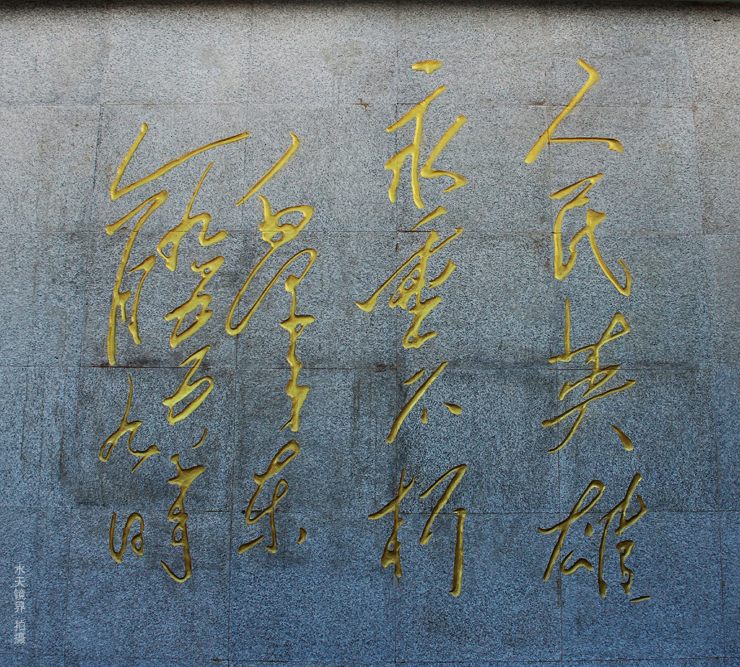 人民英雄
永垂不朽
毛澤東
一九五五年
六月九日
水天镜界 拍摄